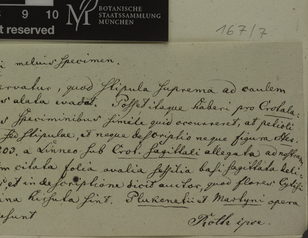 8 9 10
BOTANISCHE
STAATSSAMMLUNG
MÜNCHEN
t reserved
167/7
melius specimen.
ervatur, quod stipula suprema ad caulem
alata evadat. Possit itaque haberi pro Crotala-
speciminibus simile quid occurreret, at petioli
stipulae, et neque descriptio neque figura
203. a Linneo sub Crot. Sagittali allegata ad nostram
citata folia ovalia sessilia basi sagittata
et in descriptione dicit auctor, quod flores
hirsuta sint. Plukenetii et Martyni opera
Roth ipse.